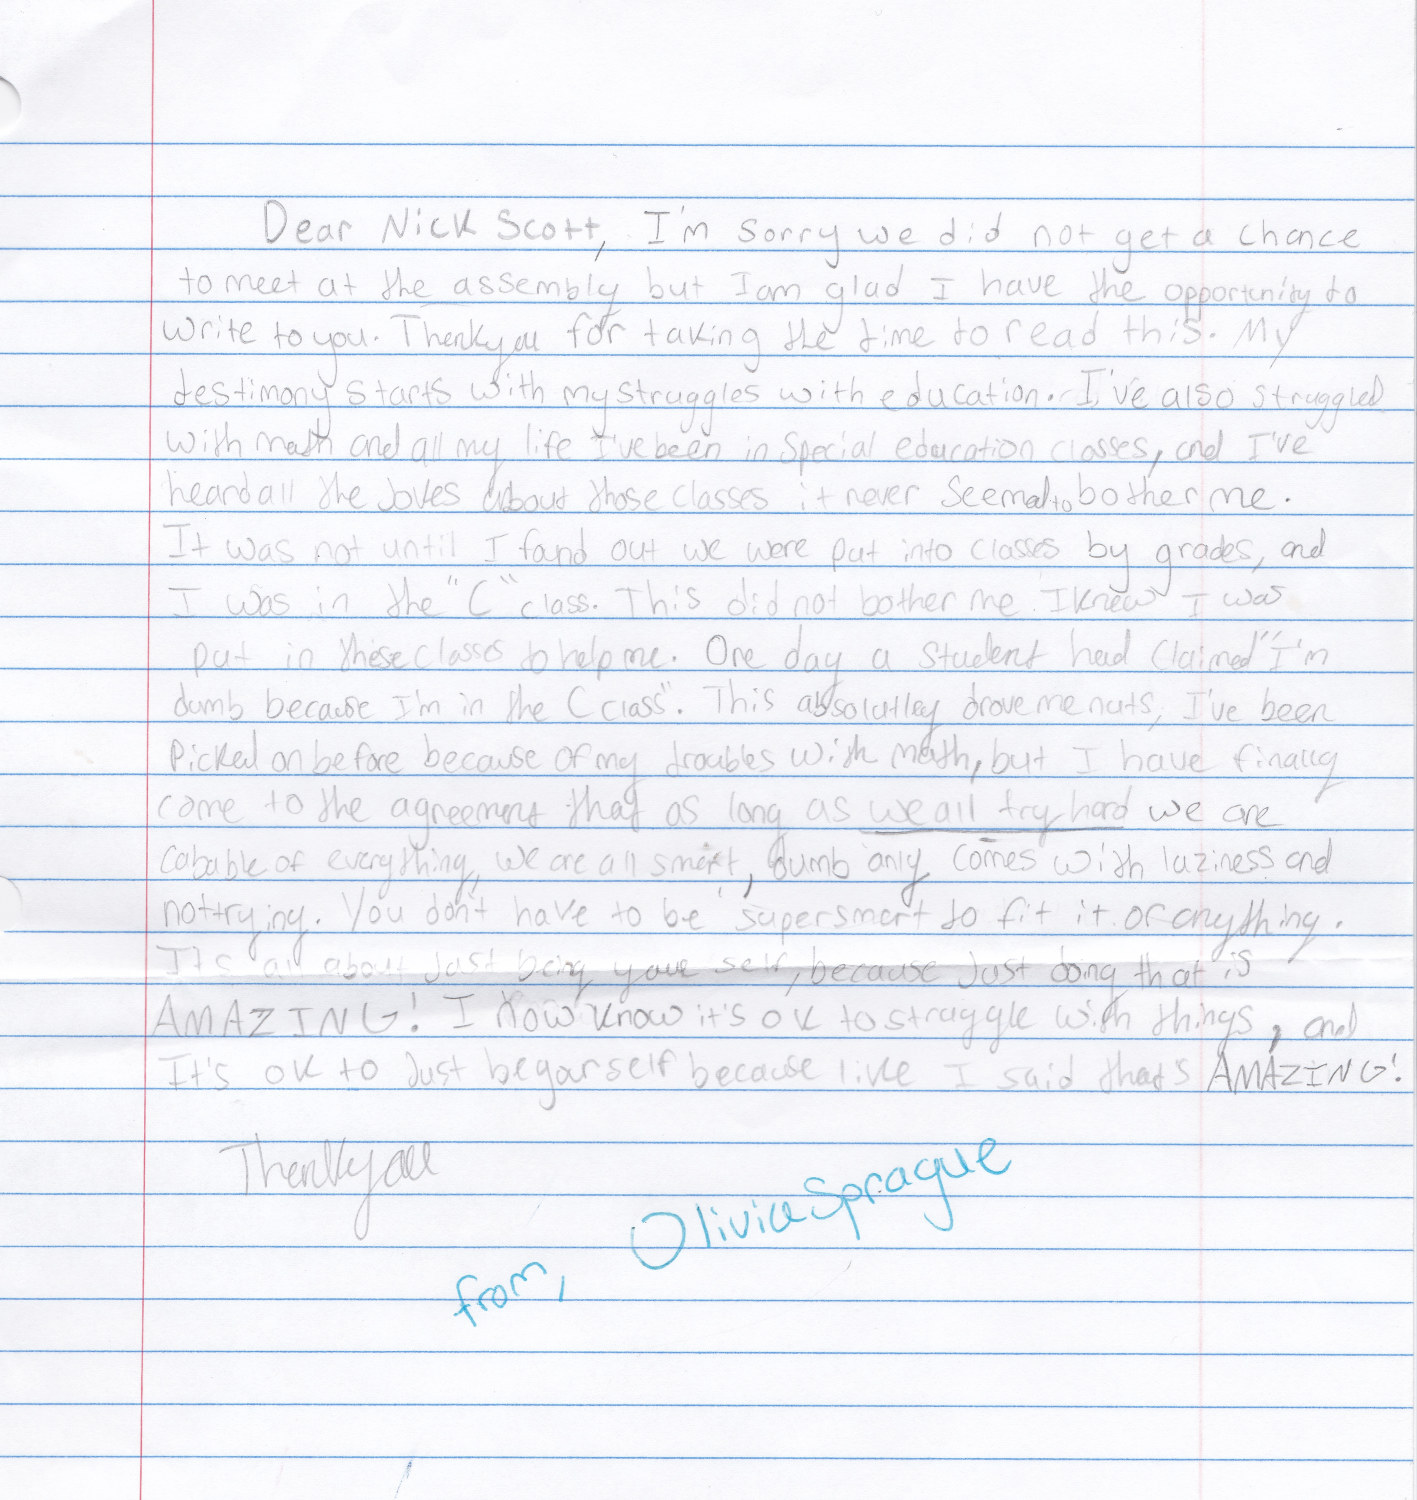 Dear Nick Scott, I'm sorry we did not get a chance
to meet at the assembly but I am glad I have the opportunity to
write to you. Thankyou for taking the time to read this. My
testimony starts with my struggles with education. I've also struggled
with math and all my life I've been in special education classes, and I've
heard all the Jokes about those classes it never seemed to bother me.
It was not until I found out we were put into classes by grades, and
I was in the "C" class. This did not bother me I knew I was
put in these classes to help me. One day a student had claimed "I'm
dumb because I'm in the C class". This absolutley drove me nuts, I've been
Picked on before because of my troubles with math, but I have finally
come to the agreement that as long as we all try hard we are
cabable of everything, we are all smart, dumb only comes with laziness and
not trying. You don't have to be supersmart to fit it or anything.
It's all about Just being your self, because Just doing that is
AMAZING! I now know it's ok to struggle with things, and
It's ok to Just be yourself because like I said that's AMAZING!
Thankyou
Olivia Sprague
from,